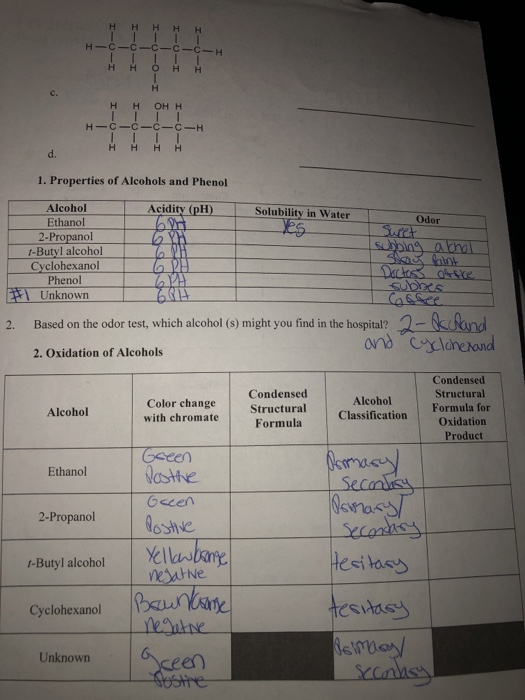 H H H H H
H-C-C-C-C-C-H
H H O H H
H
c.
H H OH H
H-C-C-C-C-H
H H H H
d.
1. Properties of Alcohols and Phenol
Alcohol Acidity (pH) Solubility in Water Odor
Ethanol 6 pH Yes Sweet
2-Propanol 6 pH
t-Butyl alcohol 6 pH
Cyclohexanol 6 pH Doctors office
Phenol 6 pH rubber
#1 Unknown 6 pH Coffee
2. Based on the odor test, which alcohol (s) might you find in the hospital? 2-
and cyclohexanol
2. Oxidation of Alcohols
Alcohol
Color change
with chromate
Condensed
Structural
Formula
Alcohol
Classification
Condensed
Structural
Formula for
Oxidation
Product
Ethanol
Green
Positive
Primary/
Secondary
2-Propanol
Green
Positive
Primary/
Secondary
t-Butyl alcohol
Yellow/orange
negative
tertiary
Cyclohexanol
Brown/orange
negative
tertiary
Unknown
green
Positive
Primary/
Secondary